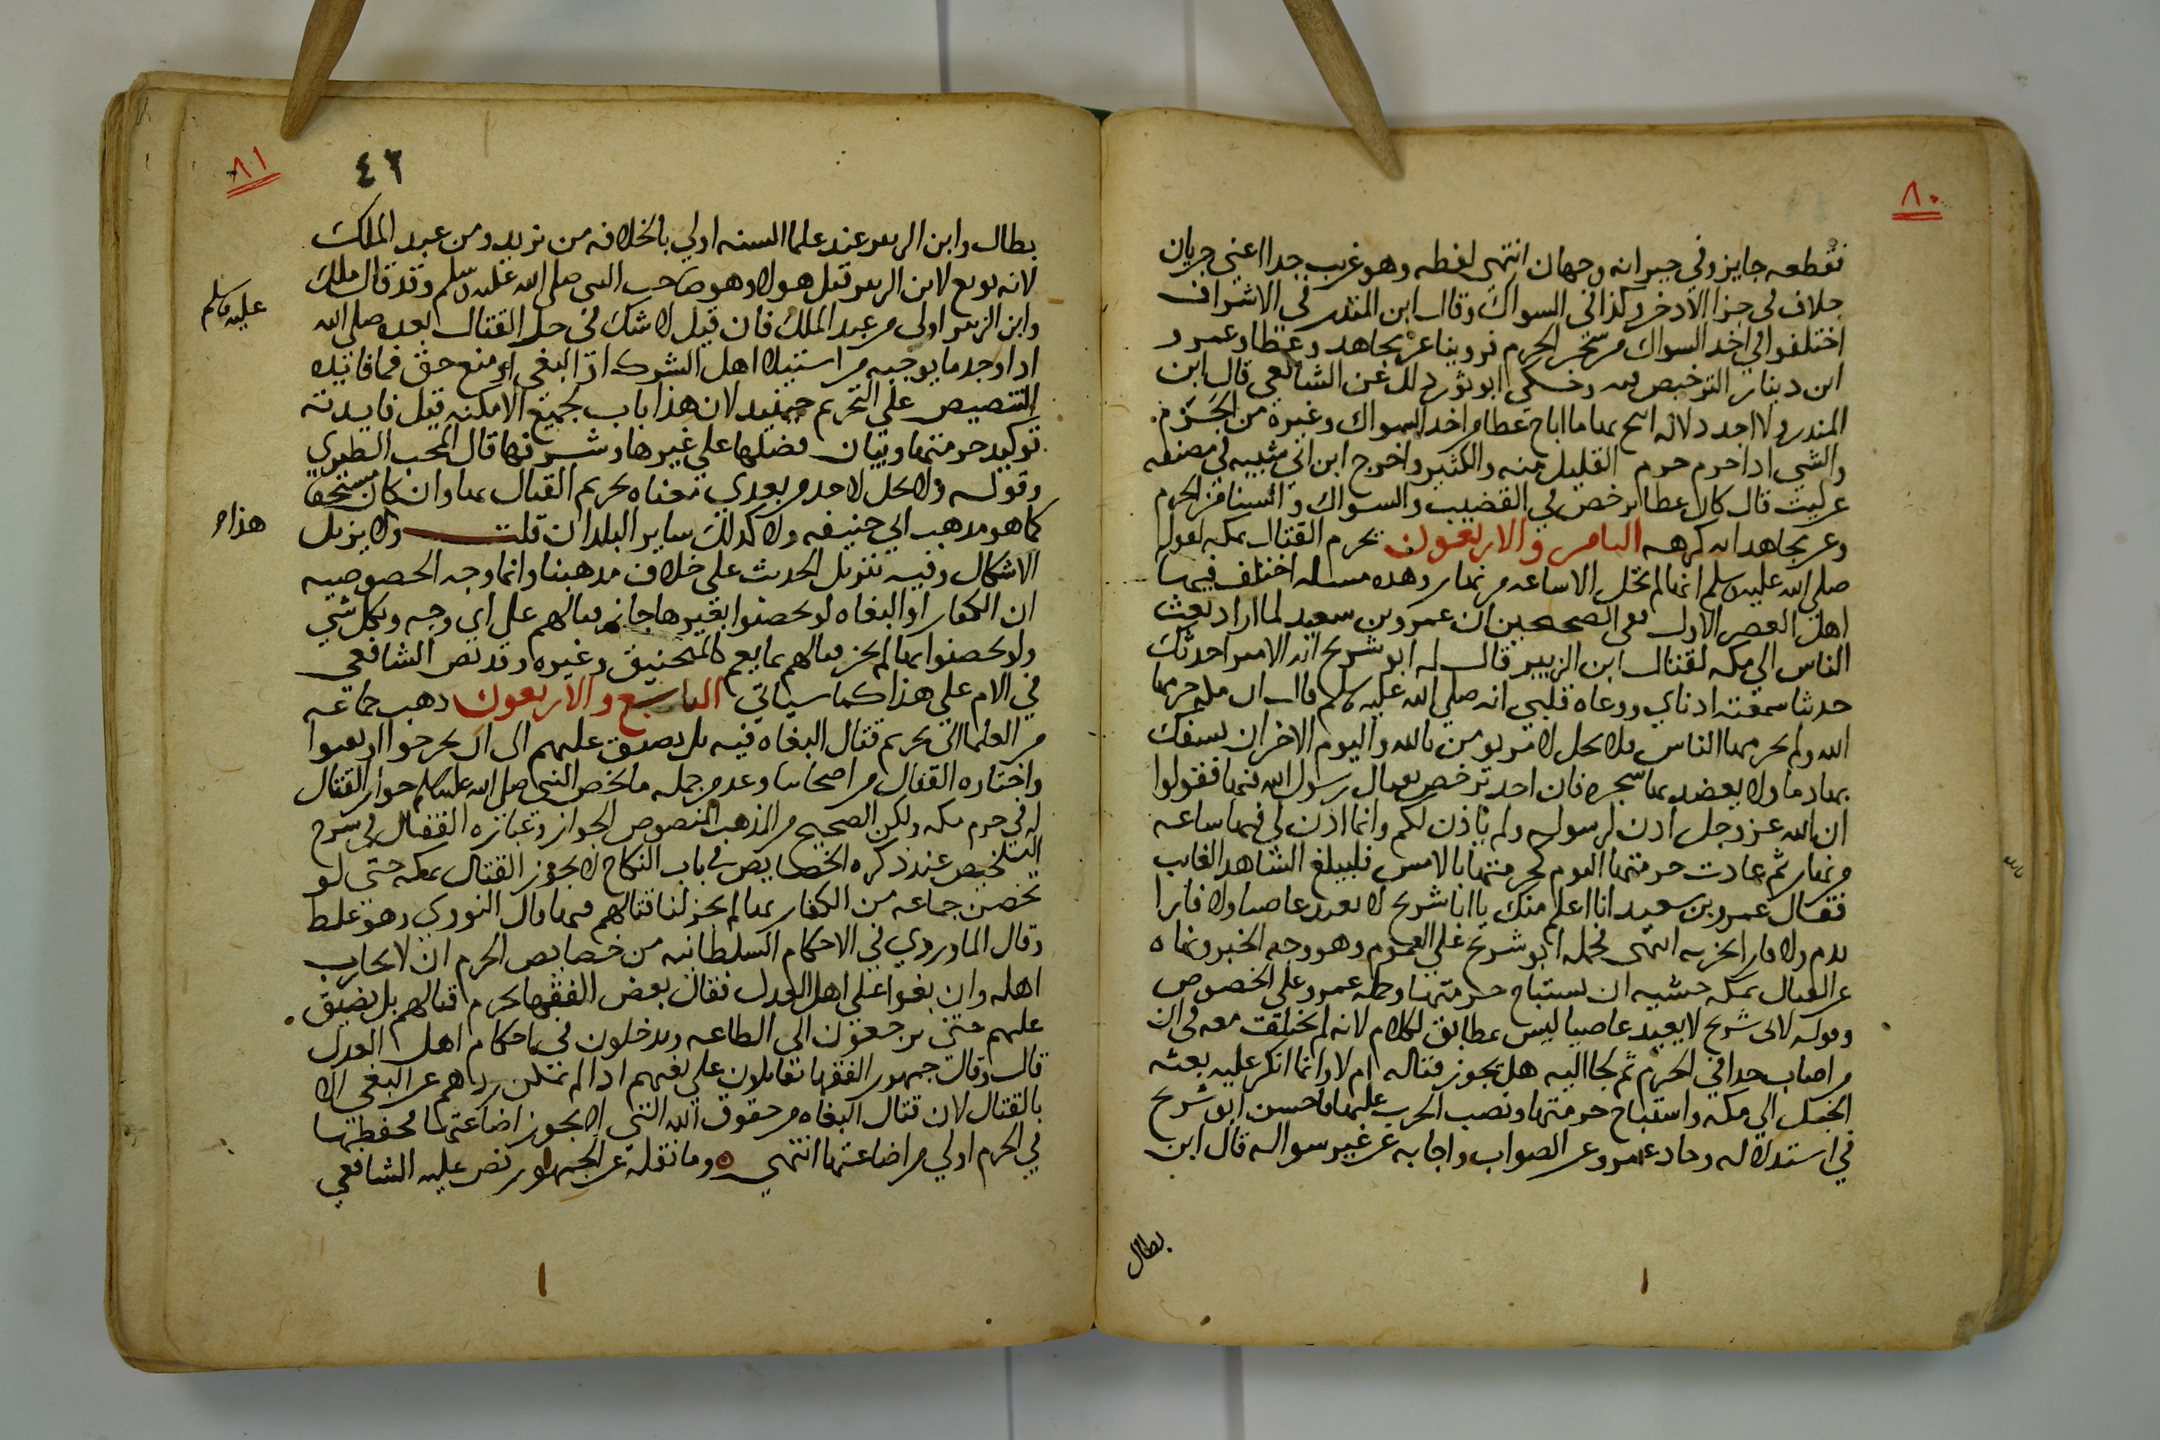 ٨٠
فقطعه جايز وفي جبرانه وجهان انتهى لفظه وهو غريب جدا اعني جريان
خلاف في جزا الادخر وكذا في السواك وقال ابن المنذر في الاشراف
اختلفوا في اخد السواك من شجر الحرم فروينا عن مجاهد وعطا وعمرو
ابن دينار الترخيص فيه وحكي ابو ثور ذلك عن الشافعي قال ابن
المنذر ولا اجد دلالة اتبع بها ما اباح عطا من اخد السواك وغيره من الحرم
والشي اذا حرم حرم القليل منه والكثير واخرج ابن ابي شيبه في مصنفه
عن ليث قال كان عطا يرخص في القضيب والسواك والسنا من الحرم
وعن مجاهد انه كرهه الثامن والاربعون يحرم القتال بمكه لقوله
صلى الله عليه وسلم انها لم تحل الا ساعه من نهار وهذه مسله اختلف فيها
اهل العصر الاول ففي الصحيحين ان عمرو بن سعيد لما اراد بعث
الناس الي مكه لقتال ابن الزبير قال له ابو شريح ايه الامير احدثك
حديثا سمعته ادناي ووعاه قلبي انه صلى الله عليه وسلم قال ان مكه حرمها
الله ولم يحرمها الناس فلا يحل لامرٍ يومن بالله واليوم الاخر ان يسفك
بها دما ولا يعضد بها شجره فان احد ترخص بقتال رسول الله فيها فقولوا
ان الله عز وجل ادن لرسوله ولم ياذن لكم وانما اذن لي فيها ساعه
من نهار ثم عادت حرمتها اليوم كحرمتها بالامس فليبلغ الشاهد الغايب
فقال عمرو بن سعيد انا اعلم منك يا ابا شريح لا يعيد عاصيا ولا فارا
بدم ولا فارا بخزيه انتهى فحمله ابو شريح على العموم وهو وجه الخبر ونهاه
عن القتال بمكه خشيه ان يستباح حرمتها وحمله عمرو على الخصوص
وقوله لابي شريح لا يعيد عاصيا ليس بمطابق لكلام لانه لم يختلف معه في ان
من اصاب حدا في الحرم ثم لجا اليه هل يجوز قتاله ام لا وانما انكر عليه بعثه
الخيل الي مكه واستباح حرمتها ونصب الحرب عليها فاحسن ابو شريح
في استدلاله وحاد عمرو عن الصواب واجابه عن غير سواله قال ابن
بطال
٨١
٤٢
بطال وابن الزبير عند علما السنه اولي بالخلافه من يزيد ومن عبد الملك
لانه بويع لابن الزبير قبل هولاء وهو صاحب النبي صلى الله عليه وسلم وقد قال ملك
وابن الزبير اولى من عبد الملك فان قيل لا شك في حل القتال بعده صلى الله
عليه وسلم
اذا وجد ما يوجبه من استيلا اهل الشرك او البغي او منع حق فما فايده
التنصيص علي التحريم حينيد لان هذا باب لجميع الامكنه قيل فايدته
توكيد حرمتها وبيان فضلها علي غيرها وشرفها قال المحب الطبري
وقوله ولا يحل لاحد من بعدي معناه تحريم القتال بها وان كان مستحقا
كما هو مدهب ابي حنيفه ولا كذلك ساير البلدان قلت ولا يزيل
هذا
الاشكال وفيه تنزيل الحديث على خلاف مدهبنا وانما وجه الخصوصيه
ان الكفار او البغاه لو تحصنوا بغيرها جاز قتالهم على اي وجه وبكل شي
ولو تحصنوا بها لم يجز قتالهم بما يعم كالمنجنيق وغيره وقد نص الشافعي
في الام علي هذا كما سياتي التاسع والاربعون دهب جماعه
من العلما الى تحريم قتال البغاه فيه بل يضيق عليهم الى ان يخرجوا او يفيوا
واختاره القفال من اصحابنا وعده من جمله ما خص النبي صلى الله عليه وسلم جواز القتال
له في حرم مكه ولكن الصحيح من المذهب المنصوص الجواز وعباره القفال في شرح
التلخيص عند ذكره الخصايص في باب النكاح لا يجوز القتال بمكه حتى لو
تحصن جماعه من الكفار بها لم يجز لنا قتالهم فيها قال النووي وهو غلط
وقال الماوردي في الاحكام السلطانيه من خصايص الحرم ان لا يحارب
اهله وان بغوا على اهل العدل فقال بعض الفقها يحرم قتالهم بل يضيق
عليهم حتى يرجعون الى الطاعه ويدخلون في احكام اهل العدل
قال وقال جمهور الفقها يقاتلون على بغيهم اذا لم يمكن ردهم عن البغي الا
بالقتال لان قتال البغاه من حقوق الله التي لا يجوز اضاعتها فحفظها
في الحرم اولي من اضاعتها انتهى وما نقله عن الجمهور نص عليه الشافعي